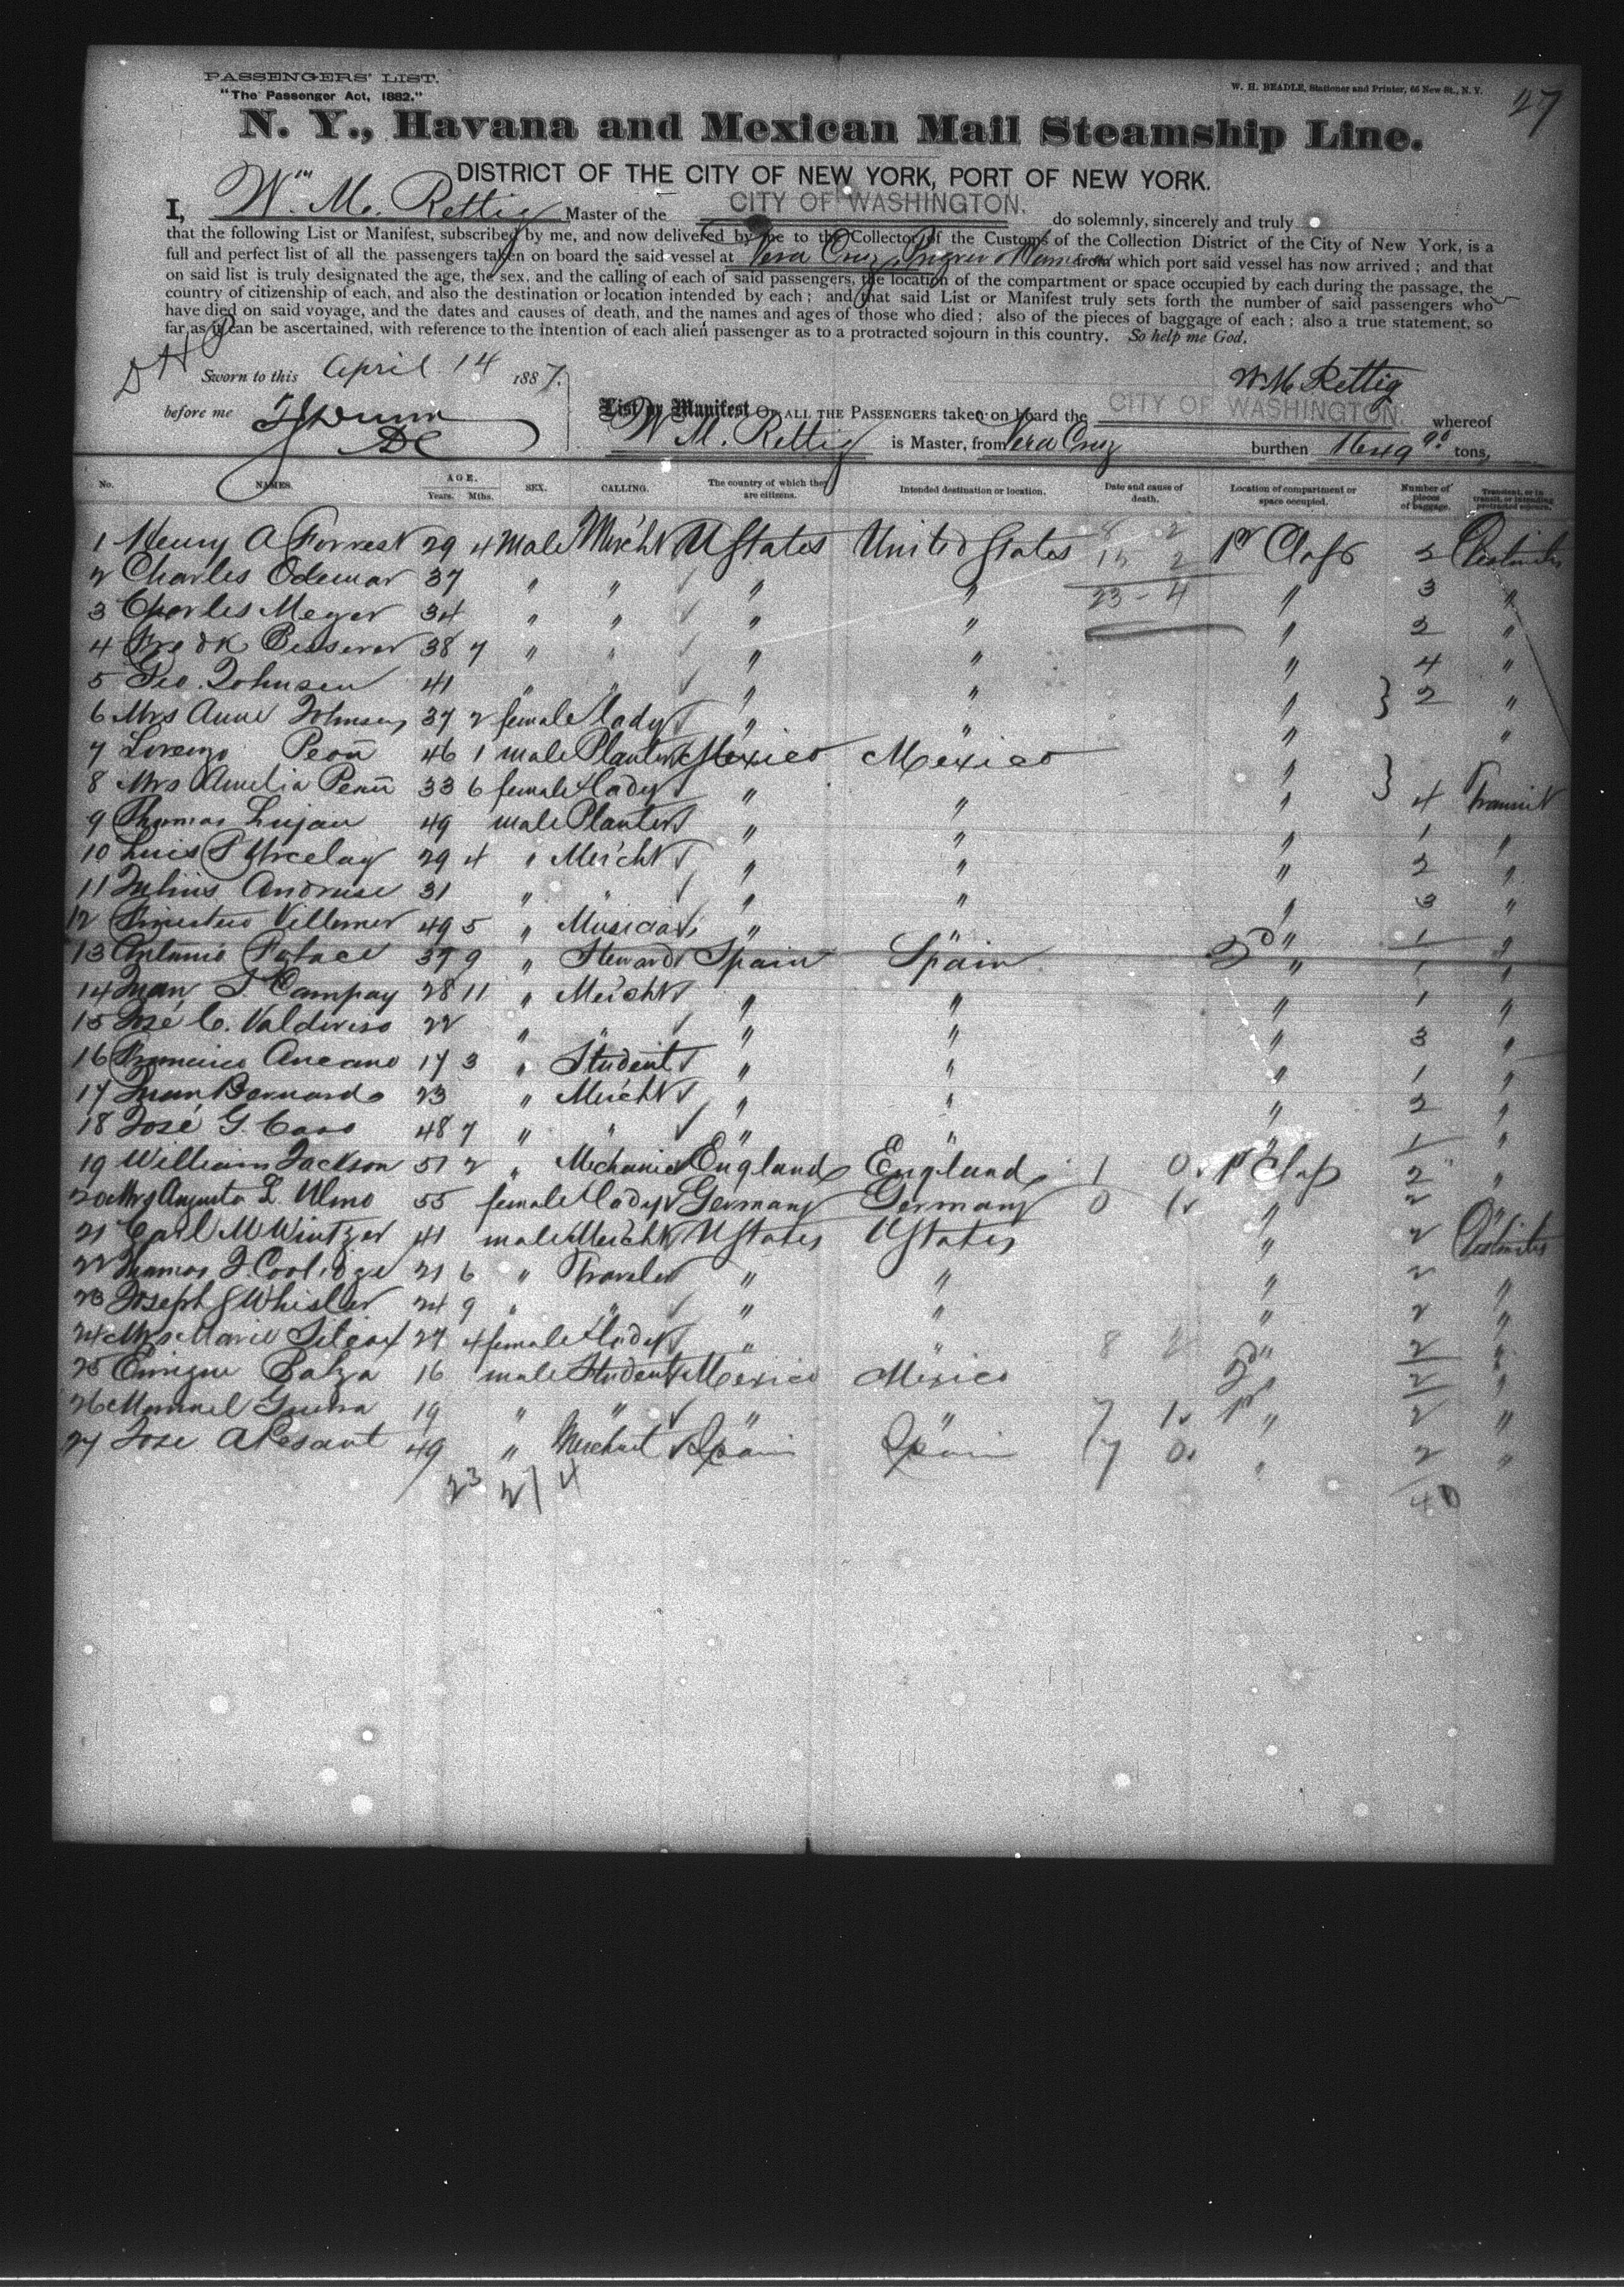 PASSENGERS' LIST.
"The Passenger Act, 1882."
W. H. BEADLE, Stationer and Printer, 66 New St., N. Y.
27
N. Y., Havana and Mexican Mail Steamship Line.
DISTRICT OF THE CITY OF NEW YORK, PORT OF NEW YORK.
I, Wm. M. Rettig Master of the CITY OF WASHINGTON. do solemnly, sincerely and truly
that the following List or Manifest, subscribed by me, and now delivered by me to the Collector of the Customs of the Collection District of the City of New York, is a
full and perfect list of all the passengers taken on board the said vessel at Vera Cruz, from which port said vessel has now arrived; and that
on said list is truly designated the age, the sex, and the calling of each of said passengers, the location of the compartment or space occupied by each during the passage, the
country of citizenship of each, and also the destination or location intended by each; and that said List or Manifest truly sets forth the number of said passengers who
have died on said voyage, and the dates and causes of death, and the names and ages of those who died; also of the pieces of baggage of each; also a true statement, so
far as it can be ascertained, with reference to the intention of each alien passenger as to a protracted sojourn in this country. So help me God.
Sworn to this April 14 1887.
W M Rettig
before me
List or Manifest OF ALL THE PASSENGERS taken on board the CITY OF WASHINGTON. whereof
W. M. Rettig is Master, from Vera Cruz burthen 1649 98 tons,
No. NAMES. AGE. Years. Mths. SEX. CALLING. The country of which they are citizens. Intended destination or location. Date and cause of death. Location of compartment or space occupied. Number of pieces of baggage. Transient, or in transit, or intending protracted sojourn.
1 Henry A Forrest 29 4 Male Mercht U States United States 1st Class 2
2 Charles Odemar 37 " " " " " 3 "
3 Charles Meyer 34 " " " " " 2 "
4 Fredk 38 7 " " " " " 4 "
5 Geo. Johnson 41 " " " " " } 2 "
6 Mrs Anne Johnson 37 2 female Lady " " " "
7 Lorenzo Peon 46 1 male Planter Mexico Mexico " }
8 Mrs Amelia Peon 33 6 female Lady " " " 4 Transit
9 Thomas Lujan 49 male Planter " " " 1 "
10 Luis P Urcelay 29 4 " Mercht " " " 2 "
11 Julius Andruse 31 " " " " " 3 "
12 49 5 " Musician " " 2d " 1 "
13 Antonio 39 9 " Steward Spain Spain " 1 "
14 Juan S. Campay 28 11 " Mercht " " " 1 "
15 José C. Valdiveso 22 " " " " " 3 "
16 Francisco 17 3 " Student " " " 1 "
17 Juan Bernardo 23 " Mercht " " " 2 "
18 José G. Caso 48 7 " " " " " 1 "
19 William Jackson 51 2 " Mechanic England England 1 0 1st Class 2 "
20 Mrs Augusta L. Ulmo 55 female Lady Germany Germany 0 1 " 2 "
21 Carl M Wintzer 41 male Mercht U States U States " 2
22 Thomas J. Coolidge 21 6 " Traveler " " " 2 "
23 Joseph S Whisler 24 9 " " " " " 2 "
24 Mrs Marie Silcox 27 4 female Lady " " " 2 "
25 Enrique Balza 16 male Student Mexico Mexico 2d 2 "
26 Manuel Guerra 19 " " " " 7 1 1st " 2 "
27 Jose A Pesant 49 " Merchant Spain Spain 7 0 " 2 "
23 27 4
40